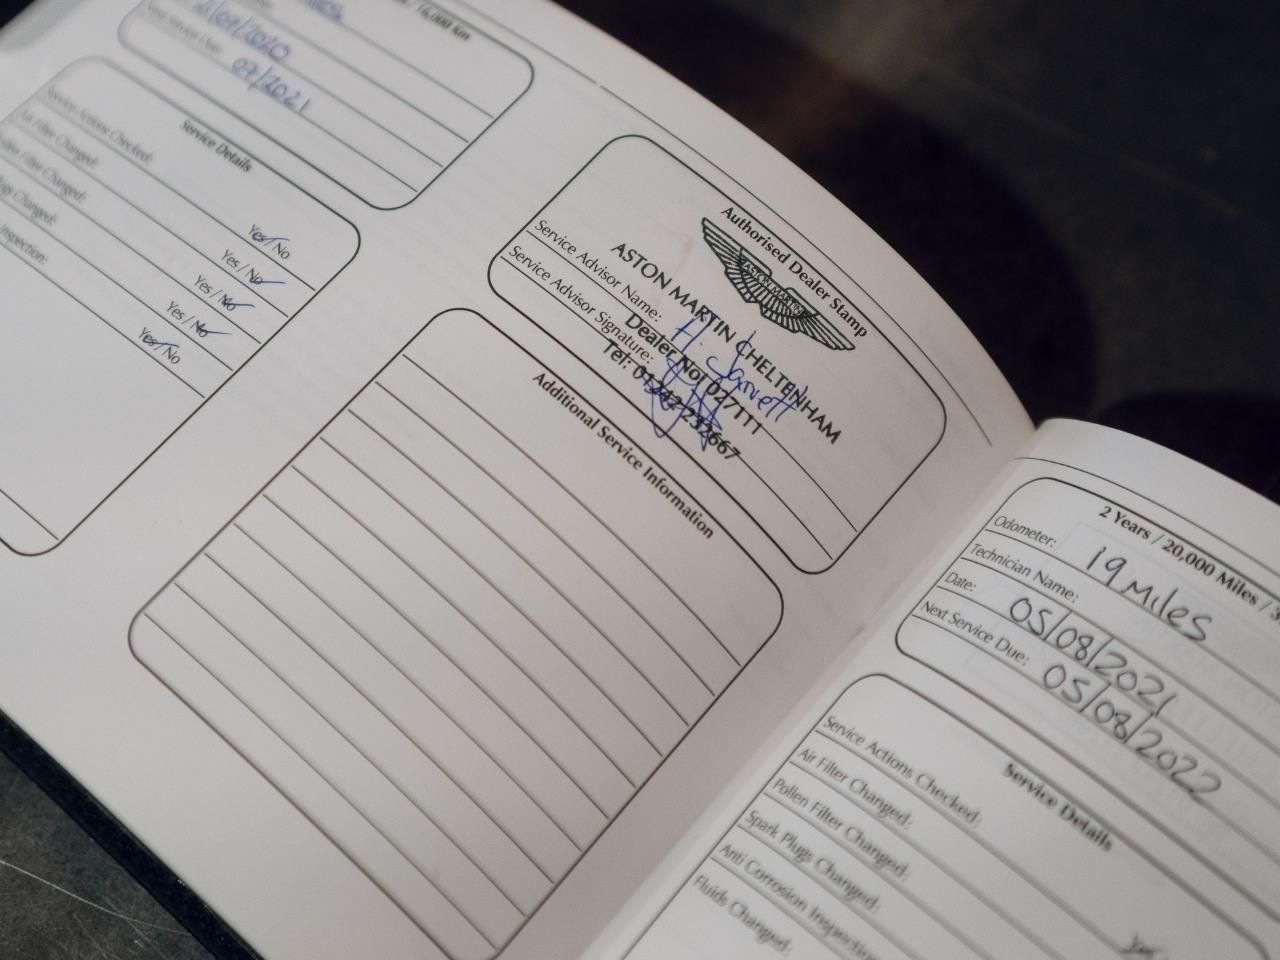 / 16,000 Km
Miles
2/07/2020
Next Service Due:
07/2021
Service Details
Service Actions Checked:
Yes / No
Air Filter Changed:
Yes / No
Pollen Filter Changed:
Yes / No
Plugs Changed:
Yes / No
Inspection:
Yes / No
Authorised Dealer Stamp
ASTON MARTIN
ASTON MARTIN CHELTENHAM
Dealer No! 027111
Tel: 01242 232667
Service Advisor Name:
H. Jarvett
Service Advisor Signature:
Additional Service Information
2 Years / 20,000 Miles / 3
Odometer:
19 Miles
Technician Name:
Date:
05/08/2021
Next Service Due:
05/08/2022
Service Details
Service Actions Checked:
Air Filter Changed:
Pollen Filter Changed:
Spark Plugs Changed:
Anti Corrosion Inspection
Fluids Changed: